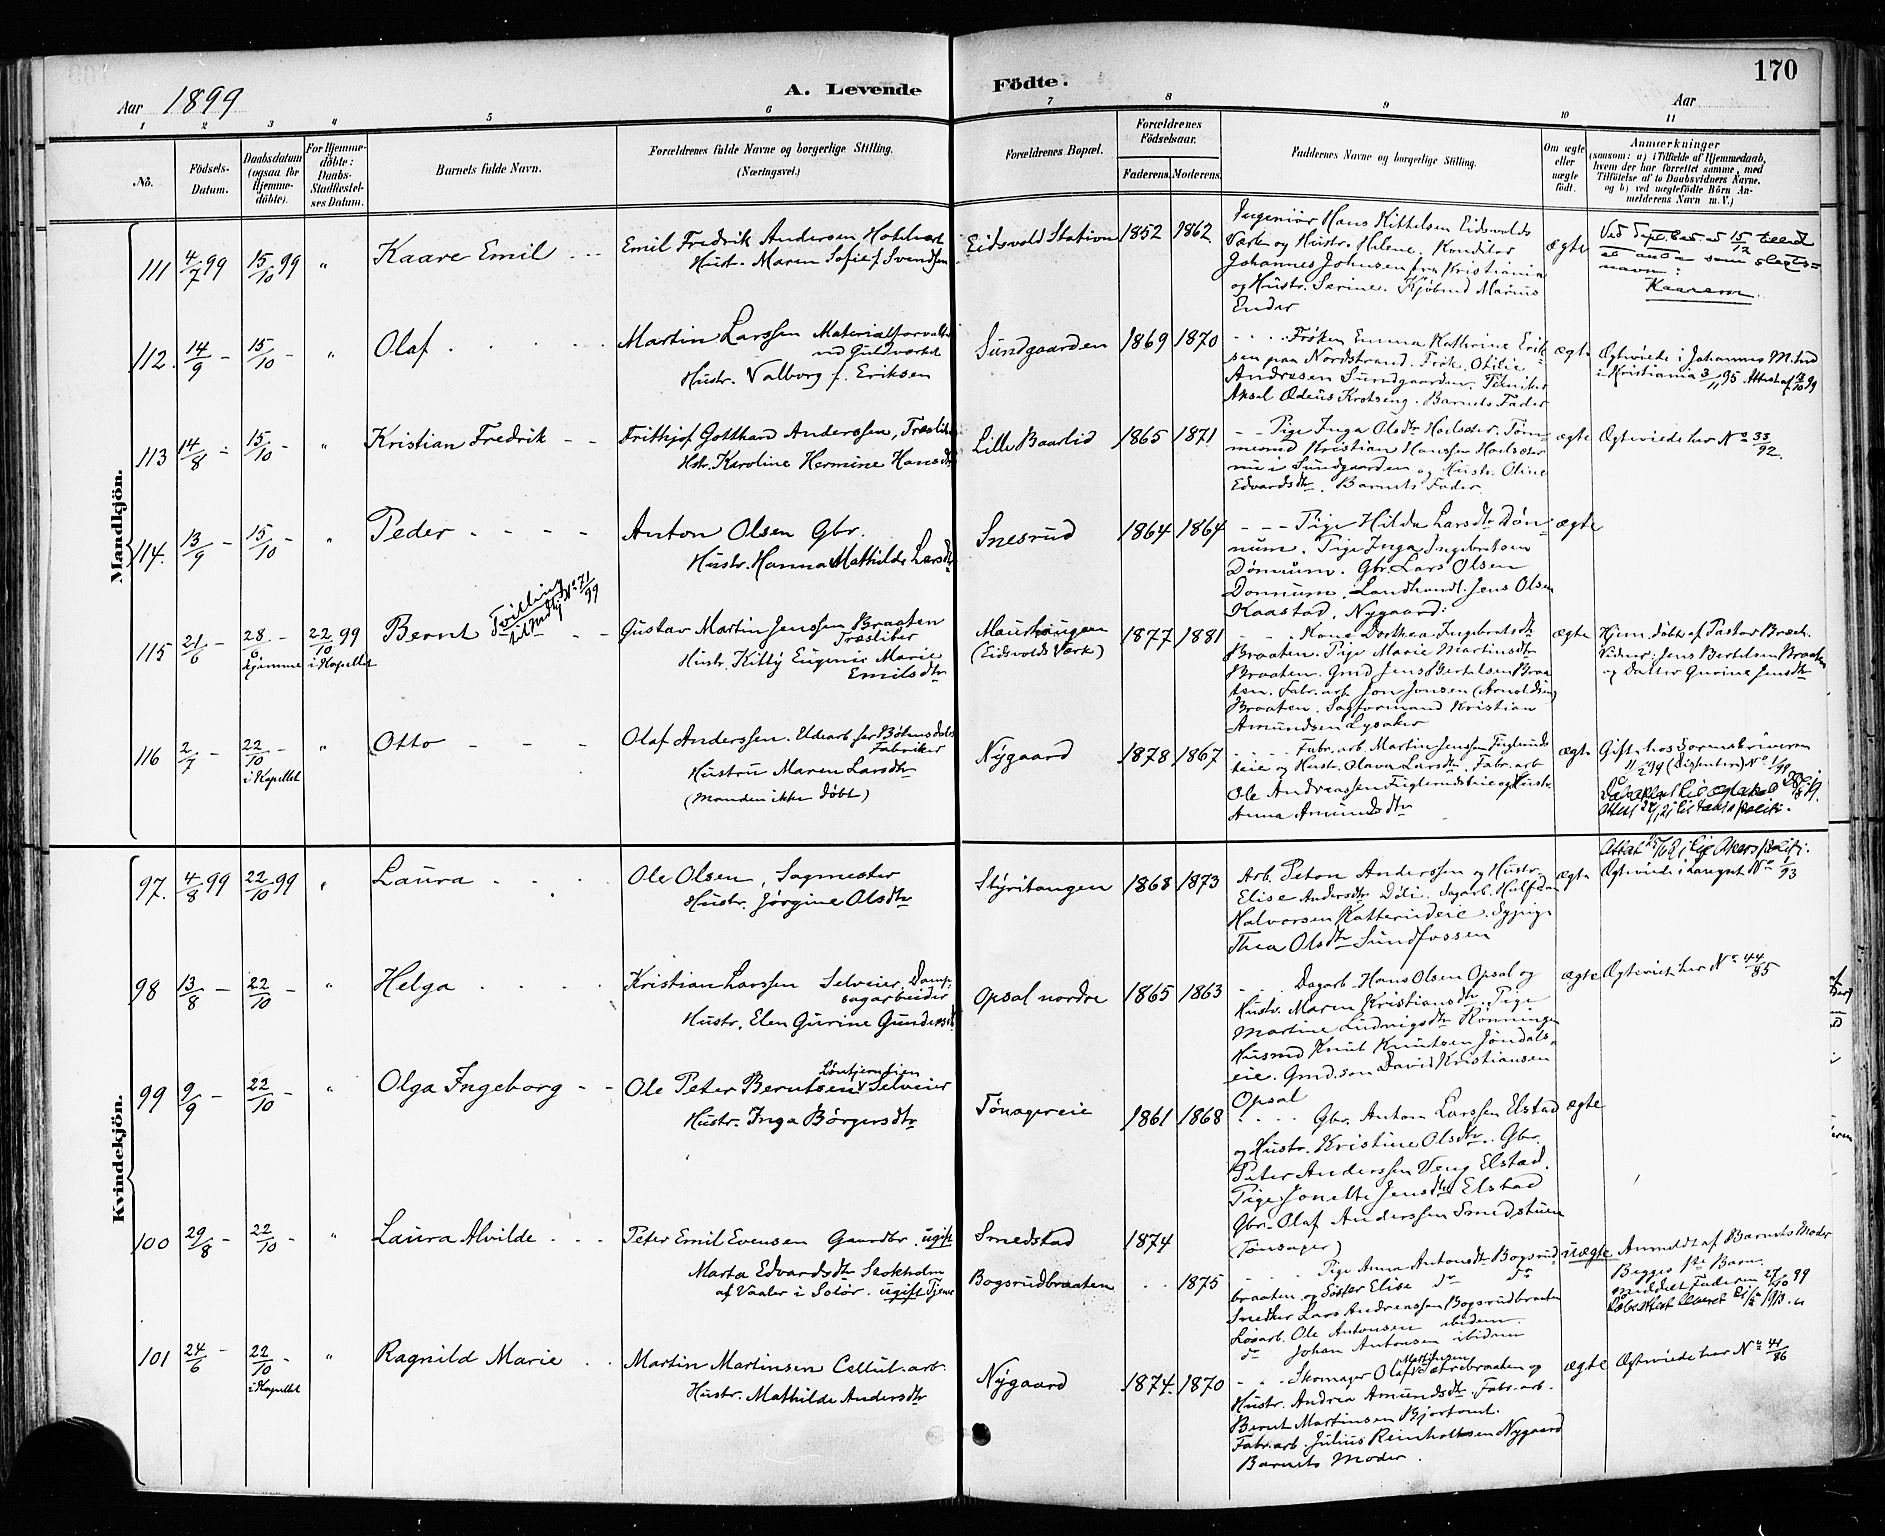 Aar 1899
A. Levende Födte.
170
Aar
1 2 3 4 5 6 7 8 9 10 11
No.
Födsels-Datum.
Daabsdatum (ogsaa for Hjemme-döbte).
For Hjemme-döbte: Daabs-Stadfæstel-ses Datum.
Barnets fulde Navn.
Forældrenes fulde Navne og borgerlige Stilling. (Næringsvei.)
Forældrenes Bopæl.
Forældrenes Födselsaar.
Faderens. Moderens.
Faddernes Navne og borgerlige Stilling.
Om ægte eller uægte födt.
Anmærkninger
(saasom: a) i Tilfælde af Hjemmedaab, hvem der har forrettet samme, med Tilföielse af to Daabsvidners Navne, og b) ved uægtefödte Börn An-melderens Navn m. V.)
Mandkjön.
111 4/7 99 15/10 99 " Kaare Emil
Emil Fredrik Andersen
Hustr. Maren Sofie f. Svendsen
Eidsvold Station 1852 1862
Ingeniör Hans Kittelsen Eidsvolds
Værk og Hustr. Helene, Konditor
Johannes Johnsen fra Kristiania
og Hustr. Serine. Kjöbmd Marius
Ender
ægte
Kaarem
112. 14/9 - 15/10 - " Olaf
Martin Larssen Materialforvalter
ved Guldværket
Hustr. Valborg f. Eriksen
Sundgaarden 1869 1870
Fröken Emma Kathrine Erik-
sen paa Nordstrand. Frök. Otilie
Andresen Sundgaarden. Tekniker
Aksel Odeus Krotseng. Barnets Fader
ægte
Ægteviede i Johannes M.hed
i Kristiania 3/11 95 Attest af 13/10 99
113 14/8 - 15/10 - " Kristian Fredrik
Frithjof Gotthard Anderssen, Træsliber
Hstr. Karoline Hermine Hansdtr
Lille Baarlid 1865 1871
Pige Inga Olsdtr Hoelseter. Töm-
mermd Kristian Hanssen Hoelseter
nu i Sundgaarden og Hustr. Oline
Edvardsdtr. Barnets Fader.
ægte
Ægteviede her No 33/92.
114. 13/9 - 15/10 - " Peder
Anton Olsen Gbr.
Hustr. Hanna Mathilde Larsdtr
Snesrud 1864 1864
Pige Hilda Larsdtr Dön-
num. Pige Inga Ingebretsen
Dönnum. Gbr. Lars Olsen
Dönnum. Landhandl. Jens Olsen
Kaastad, Nygaard.
ægte
115 21/6 28/6 - hjemme 22/10 99 i Kapellet Bernt
Tvilling til No 71/99
Gustav Martin Jenssen Braaten
Træsliber
Hustr. Kitty Eugenie Marie
Emilsdtr
Maurtangen
(Eidsvolds Værk) 1877 1881
Kone Dorthea Ingebretsdtr
Braaten. Pige Marie Martinsdtr
Braaten. Gmd Jens Bertelsen Braa-
ten. Fabr. arb. Jon Jonsen (Arnesdtr)
Braaten. Sagformand Kristian
Amundsen Lysaker
ægte
Hjem. döbt af Pastor Bræck.
Vidner: Jens Bertelsen Braaten
og Datter Gurine Jensdtr
116 2/7 22/10 - i Kapellet " Otto
Olaf Anderssen. Udearb. for Böhnsdalens
Fabriker
Hustru Maren Larsdtr
(Manden ikke döbt)
Nygaard 1878 1867
Fabr. arb. Martin Jenssen Fuglerud-
eie og Hustr. Olava Larsdtr. Fabr. arb
Ole Andreassen Fuglerudseie og Hustr.
Anna Amundsdtr
ægte
Gift hos Sorenskriveren
11/2 99 (Dissenter) No 1/99
Kvindekjön.
97. 4/8 99 22/10 99 " Laura
Ole Olsen, Sagmester
Hustr. Jörgine Olsdtr
Styritangen 1868 1873
Arb. Peton Anderssen og Hustr.
Elise Andersdtr Döli. Sagarb. Halfdan
Halvorsen Katterudeie. Sypige
Thea Olsdtr Sundfossen
ægte
Ægteviede i Langset No 1/93
98 13/8 - 22/10 - " Helga
Kristian Larssen Selveier. Damp-
sagarbeider
Hustr. Elen Gurine Gundersdtr
Opsal nordre 1865 1863
Dagarb. Hans Olsen Opsal og
Hustr. Maren Kristiansdtr. Pige
Martine Ludvigsdtr Rönningen
Husmd Knut Knutsen Jöndals-
eie. Gmd. sön David Kristiansen
Opsal
ægte
Ægteviet her No 44/85
99 9/9 22/10 - " Olga Ingeborg
Ole Peter Berntsen Selveier
Hustr. Inga Börgersdtr
Tönagereie 1861 1868
Gbr. Anton Larssen Elstad
og Hustr. Kristine Olsdtr. Gbr.
Peter Anderssen Veng Elstad.
Pige Jonette Jensdtr Elstad
Gbr. Olaf Anderssen Smedstuen
(Tönsager)
ægte
100 29/8 - 22/10 - " Laura Alvilde
Peter Emil Evensen Gaardbr. ugift
Marta Edvardsdtr Stokholm
af Vaaler i Solör. ugift Tjener
Smedstad 1874
Bogsrudbraaten 1875
Pige Anna Antonsdtr Bogsrud-
braaten og Söster Elise do do
Snedker Lars Andreassen Bogsrudbraaten
Lösarb. Ole Antonsen ibidem.
do Johan Antonsen ibidem
uægte
Anmeldt af Barnets Moder
Begges 1ste Barn.
meddelt Faderen 27/10 99
101 24/6 - 22/10 - i Kapellet " Ragnild Marie
Martin Martinsen Cellul. arb.
Hustr. Mathilde Andersdtr
Nygaard 1874. 1870
Skomager Olaf Martinsen Sætrebraaten og
Hustr. Andrea Amundsdtr. Fabr. arb.
Bernt Martinsen Bjortomt.
Fabr. arb. Julius Reinholtsen Nygaard
Barnets Moder.
ægte
Ægteviede her No 41/86